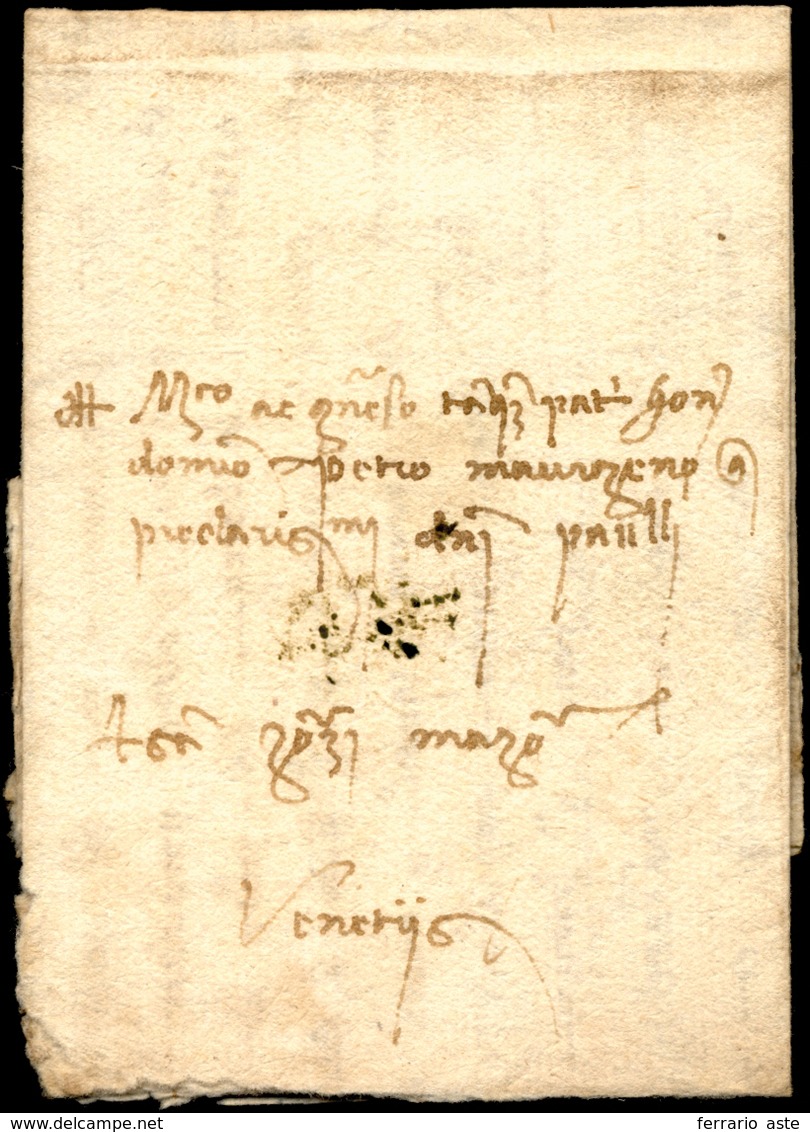 Mco ac gneso tanqz pat' hon
domino petro mauroceno q
preclarissimi dni paulli
sca
Venetijs
delcampe.net
ferrario aste